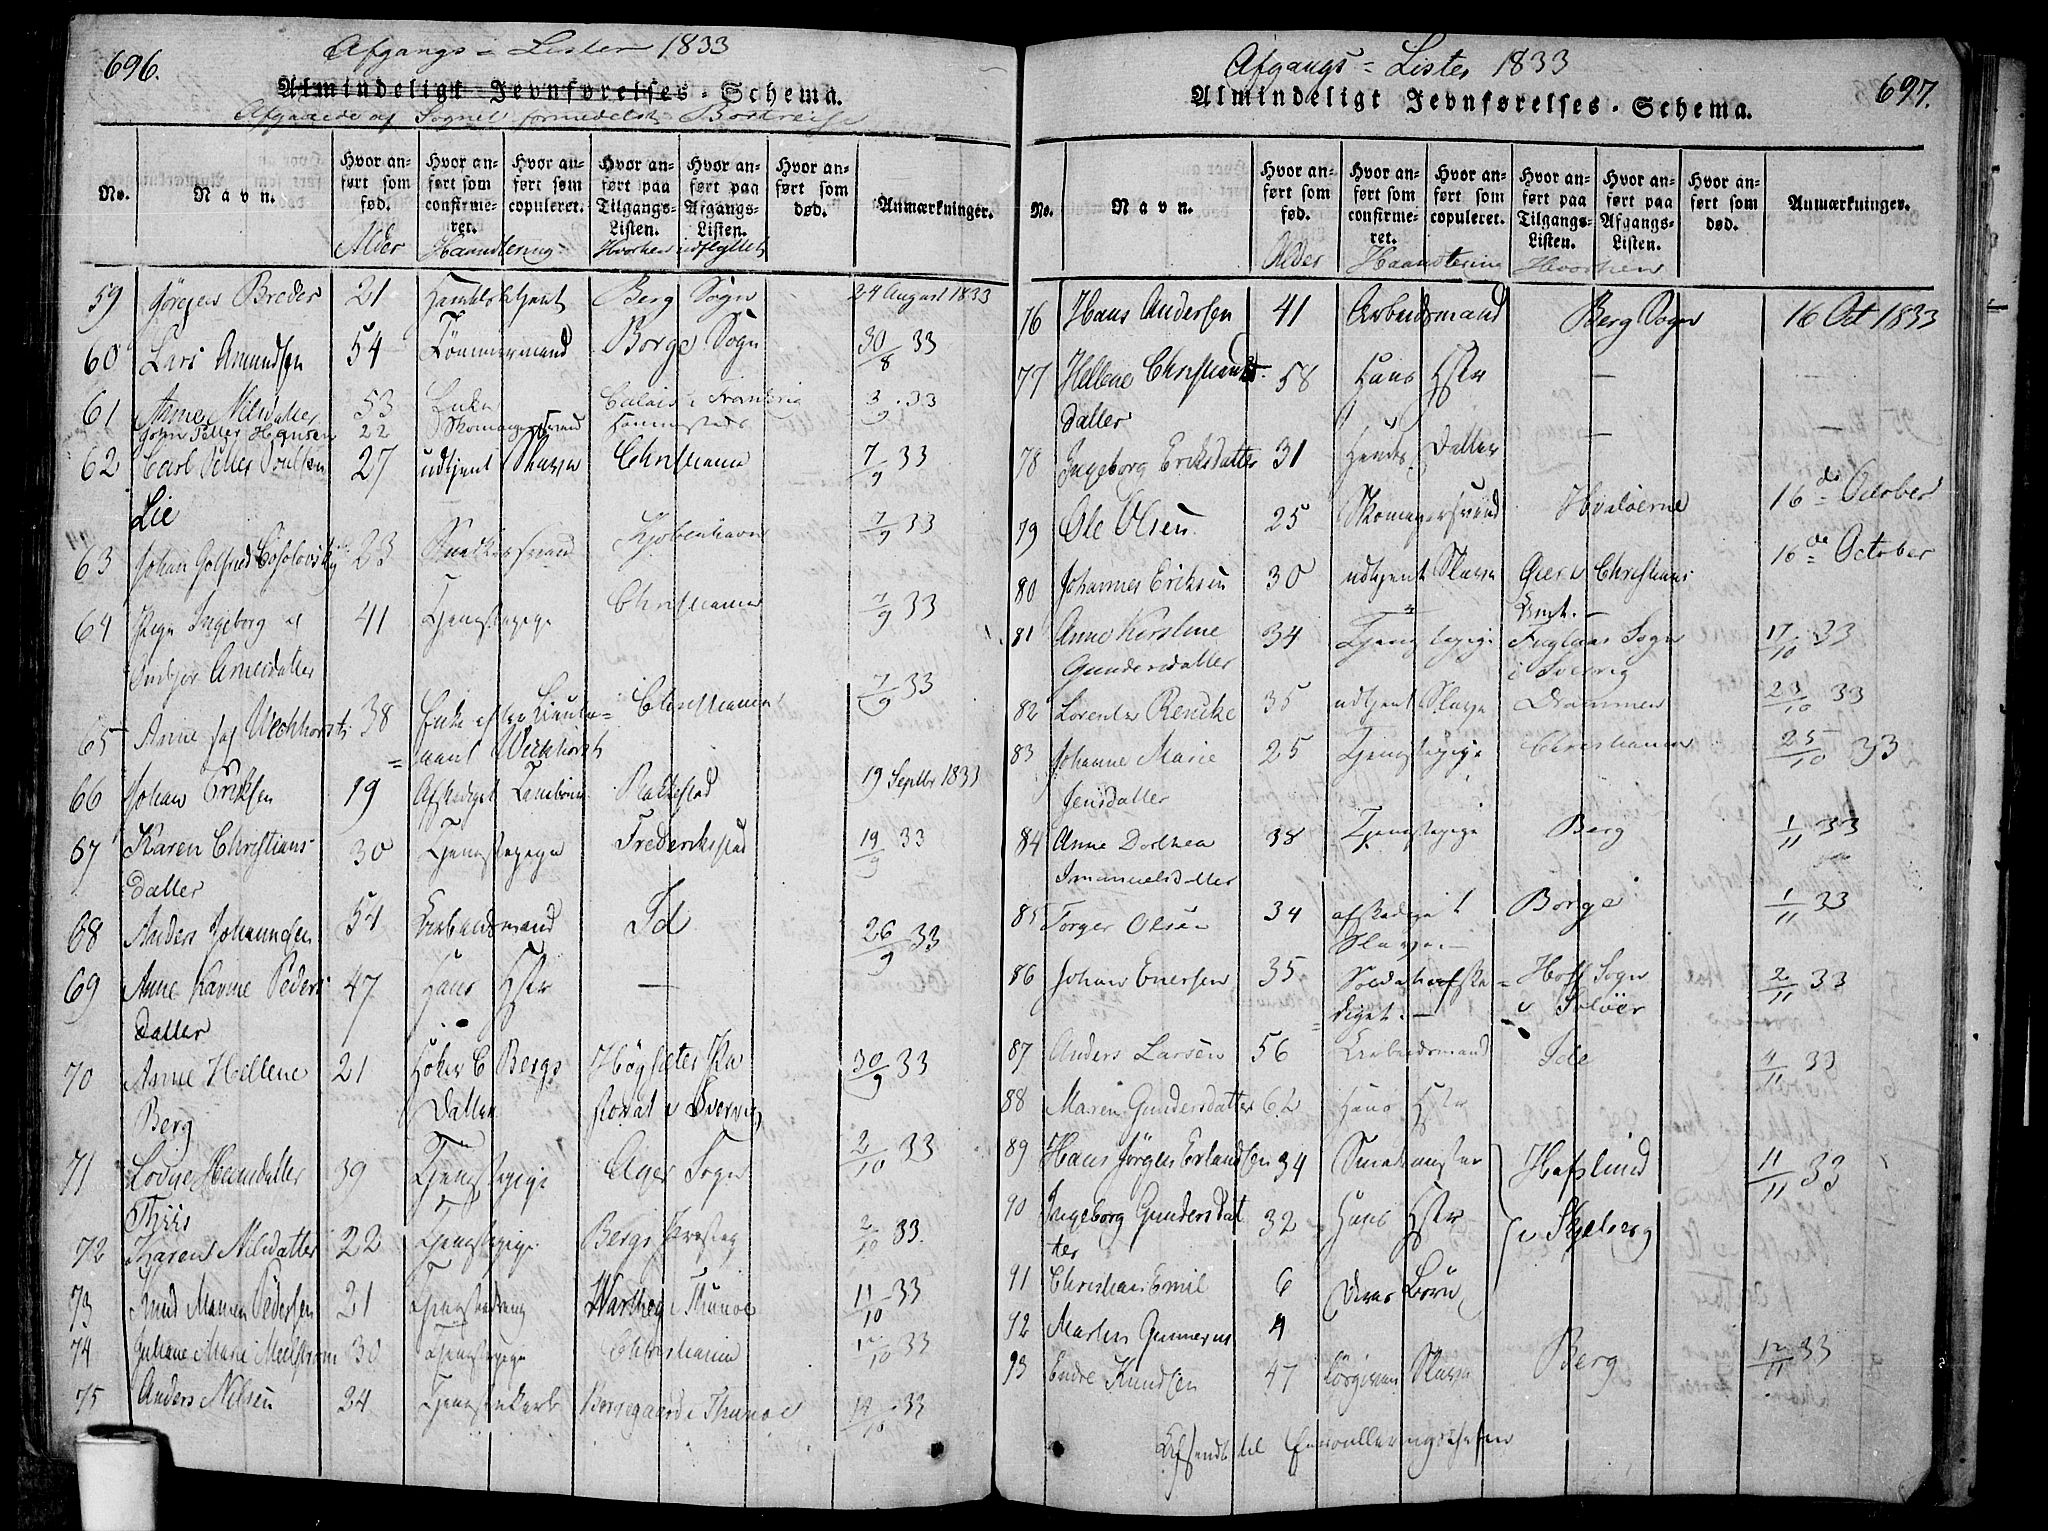 696.
Afgangs-Lister 1833
Almindeligt Jevnførelses-Schema.
Afgaaede af Sognet formedelst Bortreise
No.
Navn.
Hvor anført som fød.
Hvor anført som confirmeret.
Hvor anført som copuleret.
Hvor anført paa Tilgangs-Listen.
Hvor anført paa Afgangs-Listen.
Hvor anført som død.
Anmærkninger.
Alder Haandtering Hvorhen udflyttet
59 Jørgen Breder 21 Handelsbetjent Berg Sogn 24 August 1833
60 Lars Amundsen 54 Tömmermand Borge Sogn 30/8 33
61 Anne Nilsdatter 53 Enke Calais i Frankrig 3/9 33
22 Skomagersvend
62 Carl Petter Poulsen 27 udtjent Slave Christiania 7/9 33
Lie
63 Johan 23 Snedkersvend Kjøbenhavn 7/9 33
64 Pige Ingeborg 41 Tjenestepige Christiania 7/9 33
Arnesdatter
65 Anne 38 Enke efter Lieute= Christiania 7/9 33
nant
66 Johan Eriksen 19 Afskediget Tambour Rakkestad 19 Septbr 1833
67 Karen Christians- 30 Tjenestepige Frederikstad 19/9 33
datter
68 Anders Johannesen 54 Arbeidsmand Id 26/9 33
69 Anne Karine Peders 47 Hans Hstr —
datter
70 Anne Hellene 21 Höker C Bergs Høgsæter Pa 30/9 33
Berg Datter storat i Sverrig
71 Lovise Hansdatter 39 Tjenestepige Ager Sogn 2/10 33
Thiis
72 Karen Nilsdatter 22 Tjenestepige Bergs Præsteg 2/10 33.
73 Knud Pedersen 21 Tjenestedreng i Thunøe 11/10 33
74 Juliane Marie 30 Tjenestepige Christiania 17/10 33
75 Anders Nilsen 24 Tjenestekarl i Thunøe 19/10 33
697.
Afgangs=Lister 1833
Almindeligt Jevnførelses-Schema.
No.
Navn.
Hvor anført som fød.
Hvor anført som confirmeret.
Hvor anført som copuleret.
Hvor anført paa Tilgangs-Listen.
Hvor anført paa Afgangs-Listen.
Hvor anført som død.
Anmærkninger.
Alder Haandtering Hvorhen
76 Hans Andersen 41 Arbeidsmand Berg Sogn 16 Oct 1833
77 Hellene Christians 58 Hans Hstr — —
datter
78 Ingeborg Eriksdatter 31 Hendes Datter —
79 Ole Olsen 25 Skomagersvend Hvaløerne 16de October
80 Johannes Eriksen 30 udtjent Slave Gier i Christians 16de October
Amt. —
81 Anne Kirstine 34 Tjenestepige Sogn 17/10 33
Gundersdatter i Sverrig
82 Lorents Rencke 35 udtjent Slave Drammen 23/10 33
83 Johanne Marie 25 Tjenestepige Christiania 25/10 33
Jensdatter
84 Anne Dorthea 38 Tjenestepige Berg 1/11 33
Imanuelsdatter
85 Torger Olsen 34 afskediget Borge 1/11 33
Slave. —
86 Johan Enersen 35 Soldat afske= Hoff Sogn 2/11 33
diget. — i Soløer
87 Anders Larsen 56 Arbeidsmand Ide 4/11 33
88 Maren Gundersdatter 62 Hans Hstr
89 Hans Jörgen Erlandsen 34 Smedmester Hafslund 11/11 33
90 Ingeborg Gundersdat 32 Hans Hstr i Skjeberg
ter
91 Christian Emil 6 Deres Börn
92 Martin Gunnerus 4
93 Endre Knudsen 47 Slave Berg 12/11 33
Afsendt til